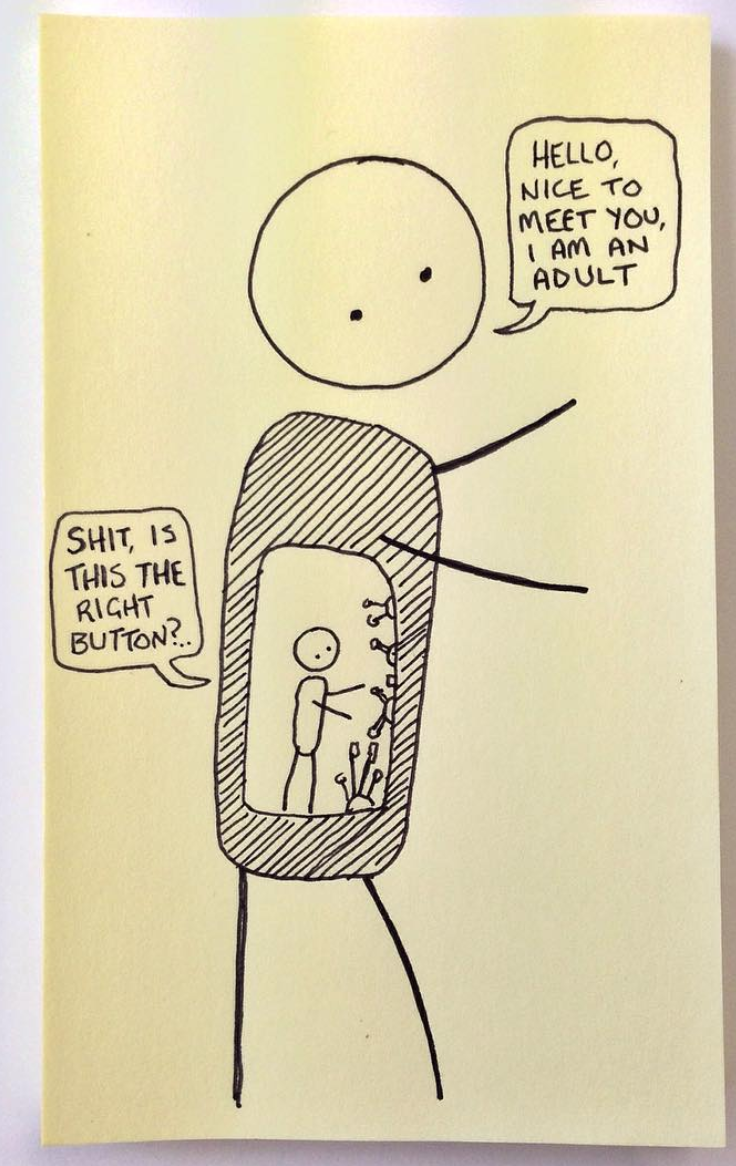 HELLO,
NICE TO
MEET YOU,
I AM AN
ADULT
SHIT, IS
THIS THE
RIGHT
BUTTON?..